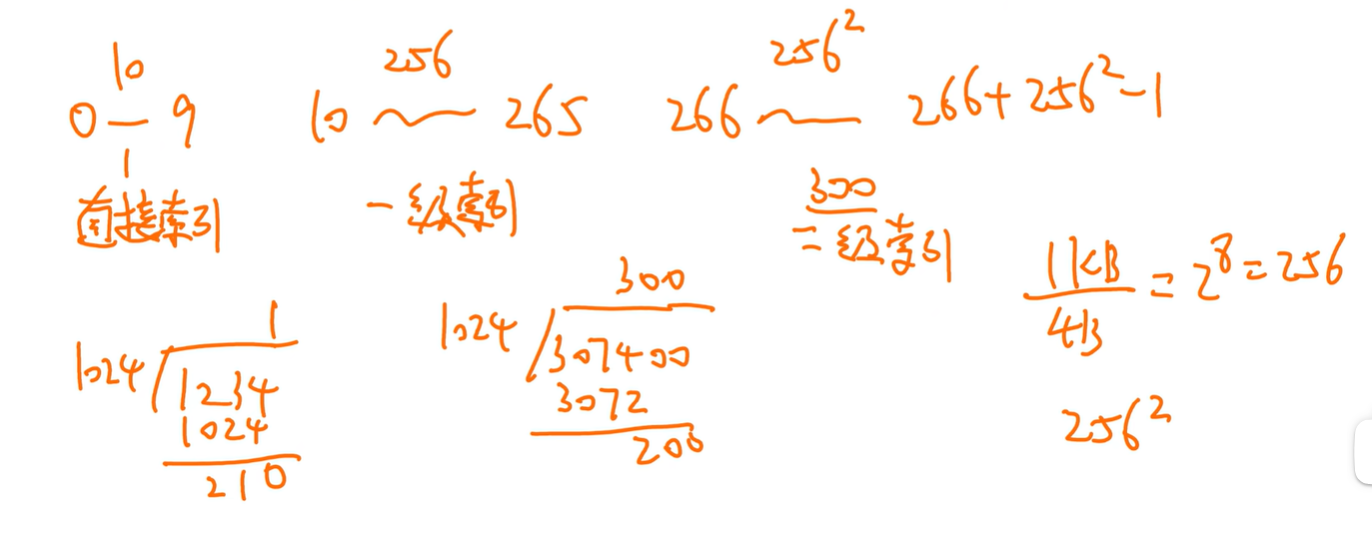 10 256 256²
0 — 9 10 ~ 265 266 ~ 266+256²-1
1 300
直接索引 一级索引 二级索引
1KB/4B = 2⁸ = 256
1
1024 1234
1024
210
300
1024 307400
3072
200
256²